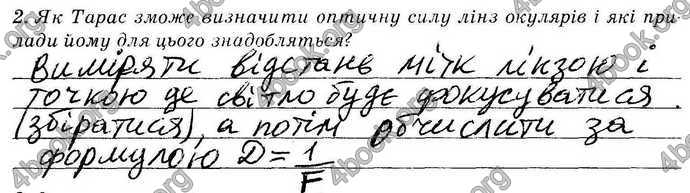 2. Як Тарас зможе визначити оптичну силу лінз окулярів і які при-
лади йому для цього знадобляться?
Виміряти відстань мітк лінзою і
точкою де світло буде фокусуватися
(збіратися), а потім обчислити за
формулою D = 1/F